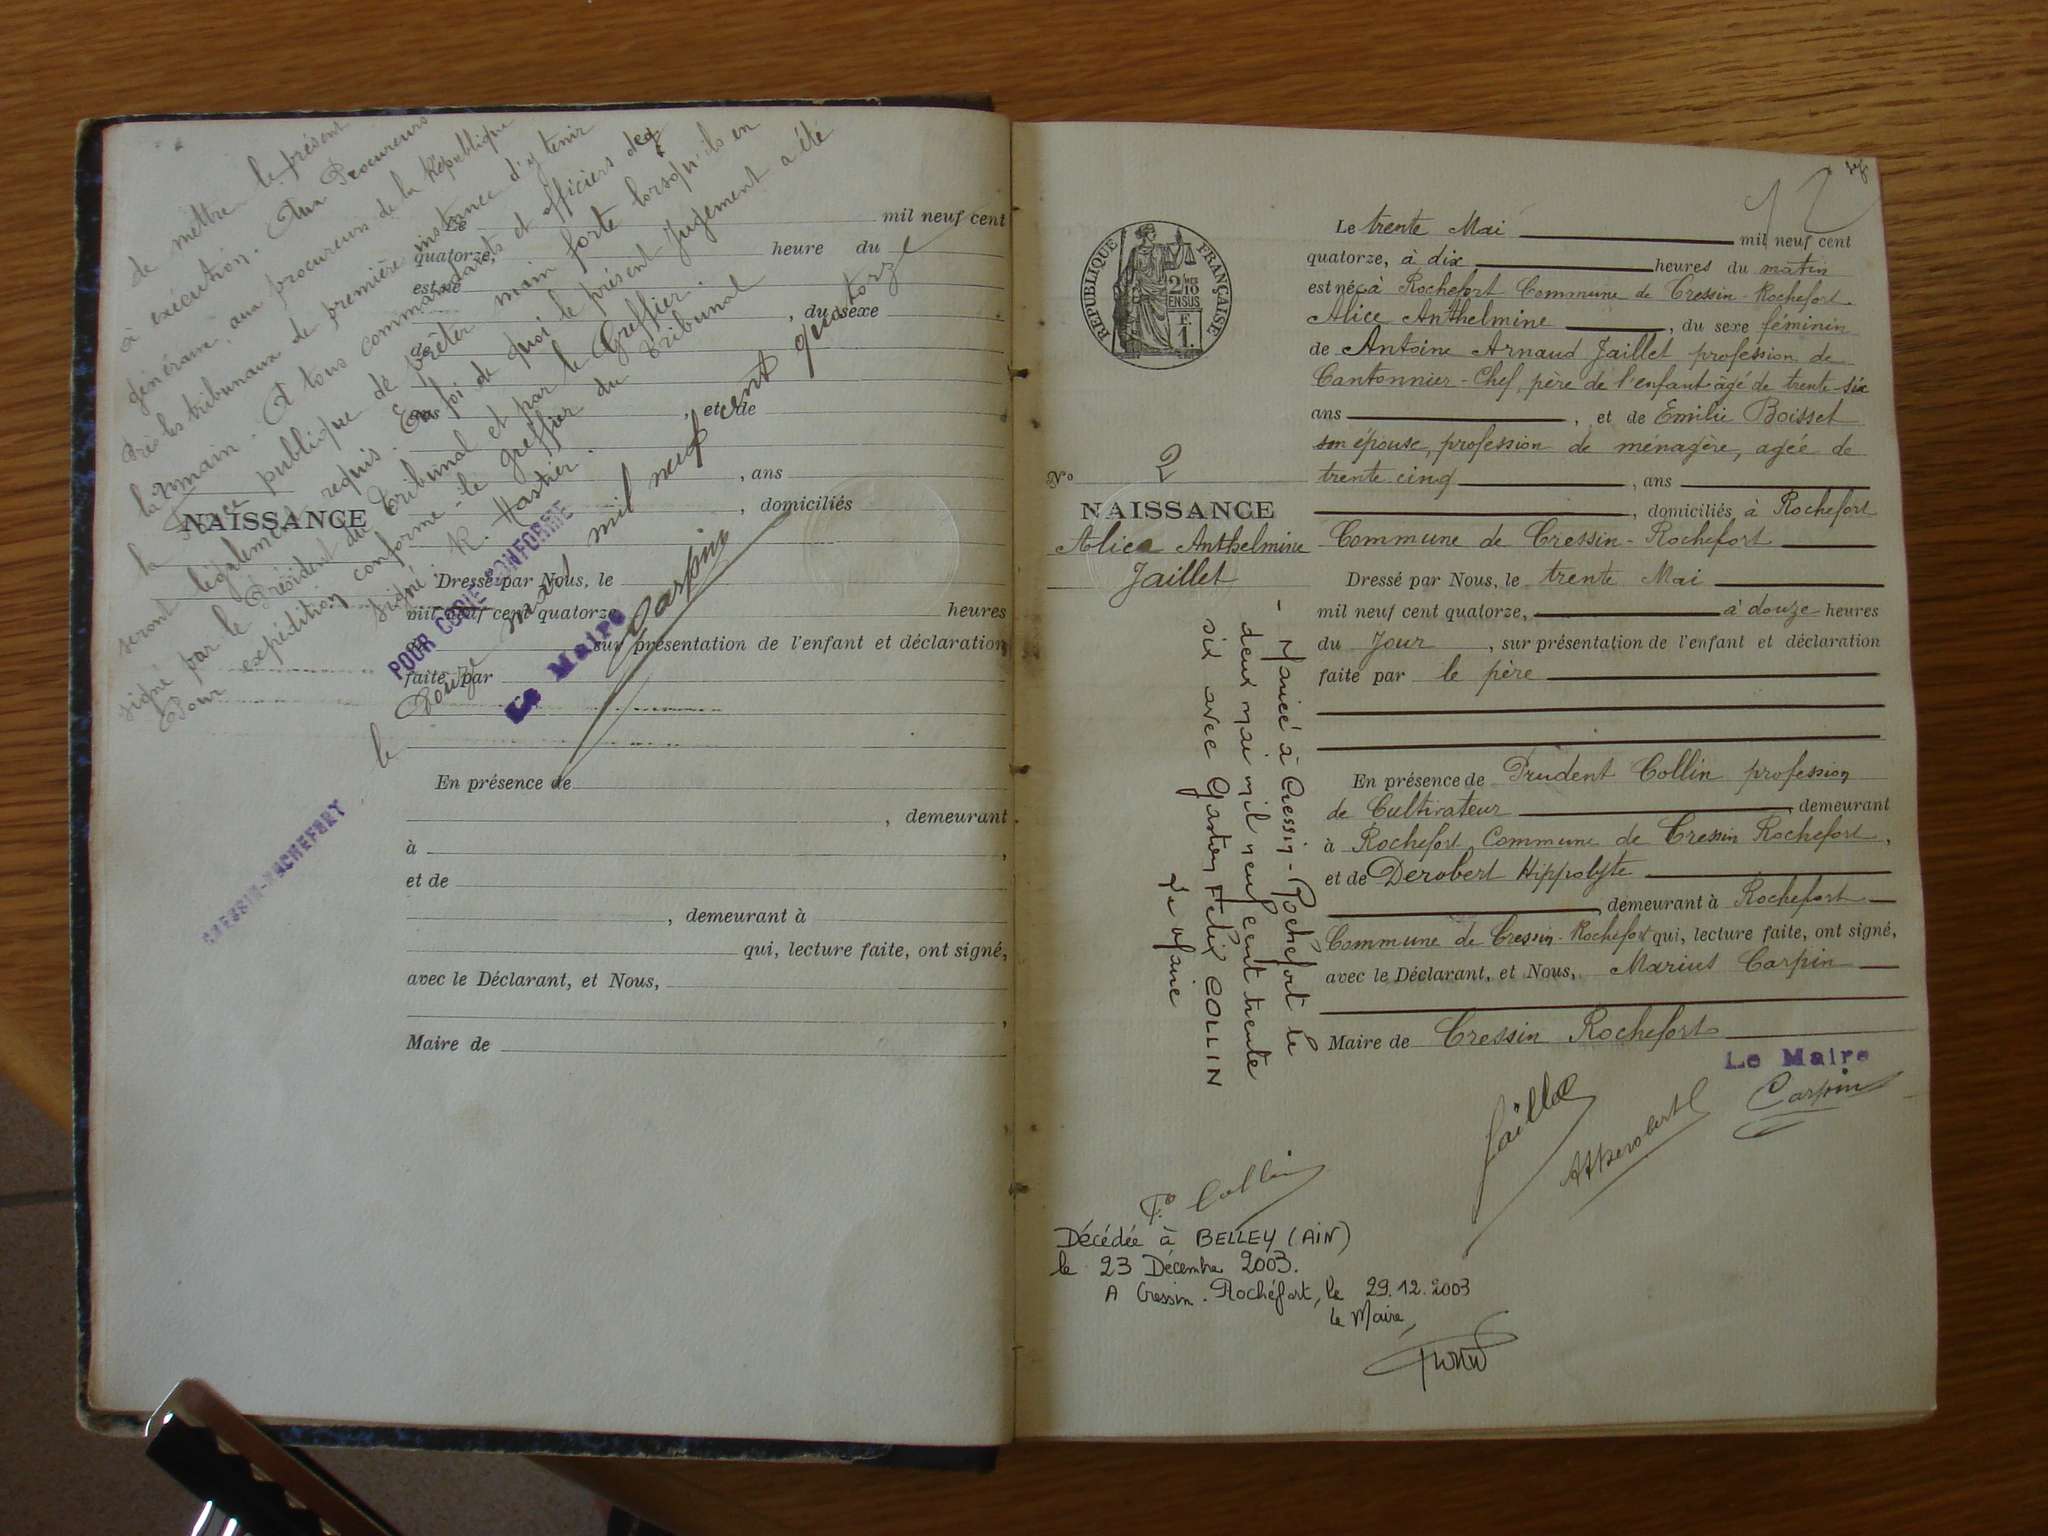 de mettre le présent
à exécution. Aux Procureurs
généraux, aux procureurs de la République
près les tribunaux de première instance d'y tenir
la main. A tous commandants et officiers de
la Force publique de prêter main forte lorsqu'ils en
seront légalement requis. En foi de quoi le présent jugement a été
signé par le Président du Tribunal et par le Greffier.
Pour expédition conforme - le greffier du Tribunal
signé: R. Hastier.
POUR COPIE CONFORME
le Douze mars mil neuf cent quatorze
Le Maire
Carpin
CRESSIN-ROCHEFORT
NAISSANCE
Le mil neuf cent
quatorze, heure du
est né
, du sexe
de
ans , et de
, ans
, domiciliés
Dressé par Nous, le
mil neuf cent quatorze heures
sur présentation de l'enfant et déclaration
faite par
En présence de
, demeurant
à ,
et de
, demeurant à
qui, lecture faite, ont signé,
avec le Déclarant, et Nous,
,
Maire de
RÉPUBLIQUE FRANÇAISE
2/10
EN SUS
F.
1.
N° 2
NAISSANCE
Alice Anthelmine
Jaillet
- Mariée à Cressin-Rochefort le
deux mai mil neuf cent trente
six avec Gaston Félix COLLIN
Le Maire
12
Le trente Mai mil neuf cent
quatorze, à dix heures du matin
est née à Rochefort Commune de Cressin-Rochefort
Alice Anthelmine , du sexe féminin
de Antoine Arnaud Jaillet profession de
Cantonnier-Chef, père de l'enfant âgé de trente-six
ans , et de Emilie Boisset
son épouse, profession de ménagère, agée de
trente cinq , ans
, domiciliés à Rochefort
Commune de Cressin-Rochefort
Dressé par Nous, le trente Mai
mil neuf cent quatorze, à douze heures
du Jour , sur présentation de l'enfant et déclaration
faite par le père
En présence de Prudent Collin profession
de Cultivateur , demeurant
à Rochefort Commune de Cressin Rochefort,
et de Derobert Hippolyte
, demeurant à Rochefort
Commune de Cressin-Rochefort qui, lecture faite, ont signé,
avec le Déclarant, et Nous, Marius Carpin
Maire de Cressin Rochefort
Le Maire
Jaillet
Carpin
Collin
Décédée à BELLEY (AIN)
le 23 Décembre 2003.
A Cressin-Rochefort, le 29.12.2003
Le Maire,